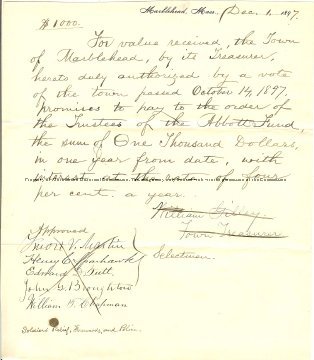 $1000.
Marblehead, Mass. Dec. 1, 1897.
For value received, the Town
of Marblehead, by its Treasurer,
hereto duly authorized by a vote
of the town passed October 14, 1897,
promises to pay to the order of
the Trustees of the Abbott Fund,
the sum of One Thousand Dollars,
in one year from date, with
interest at the rate of four
per cent. a year.
William Gilley
Town Treasurer
Approved,
Henry C. Sparhawk
John G. Broughton
William B. Chapman
Selectmen.
Soldiers Relief,